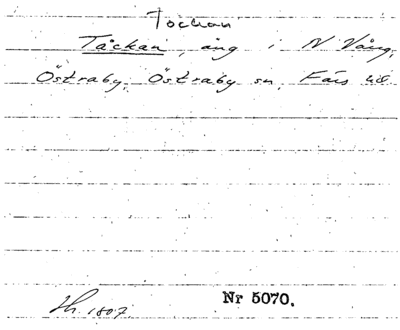 Tockan
Tåckan, äng i N Vång,
Östraby, Östraby sn, Färs hd.
Sk. 1807.
Nr 5070.